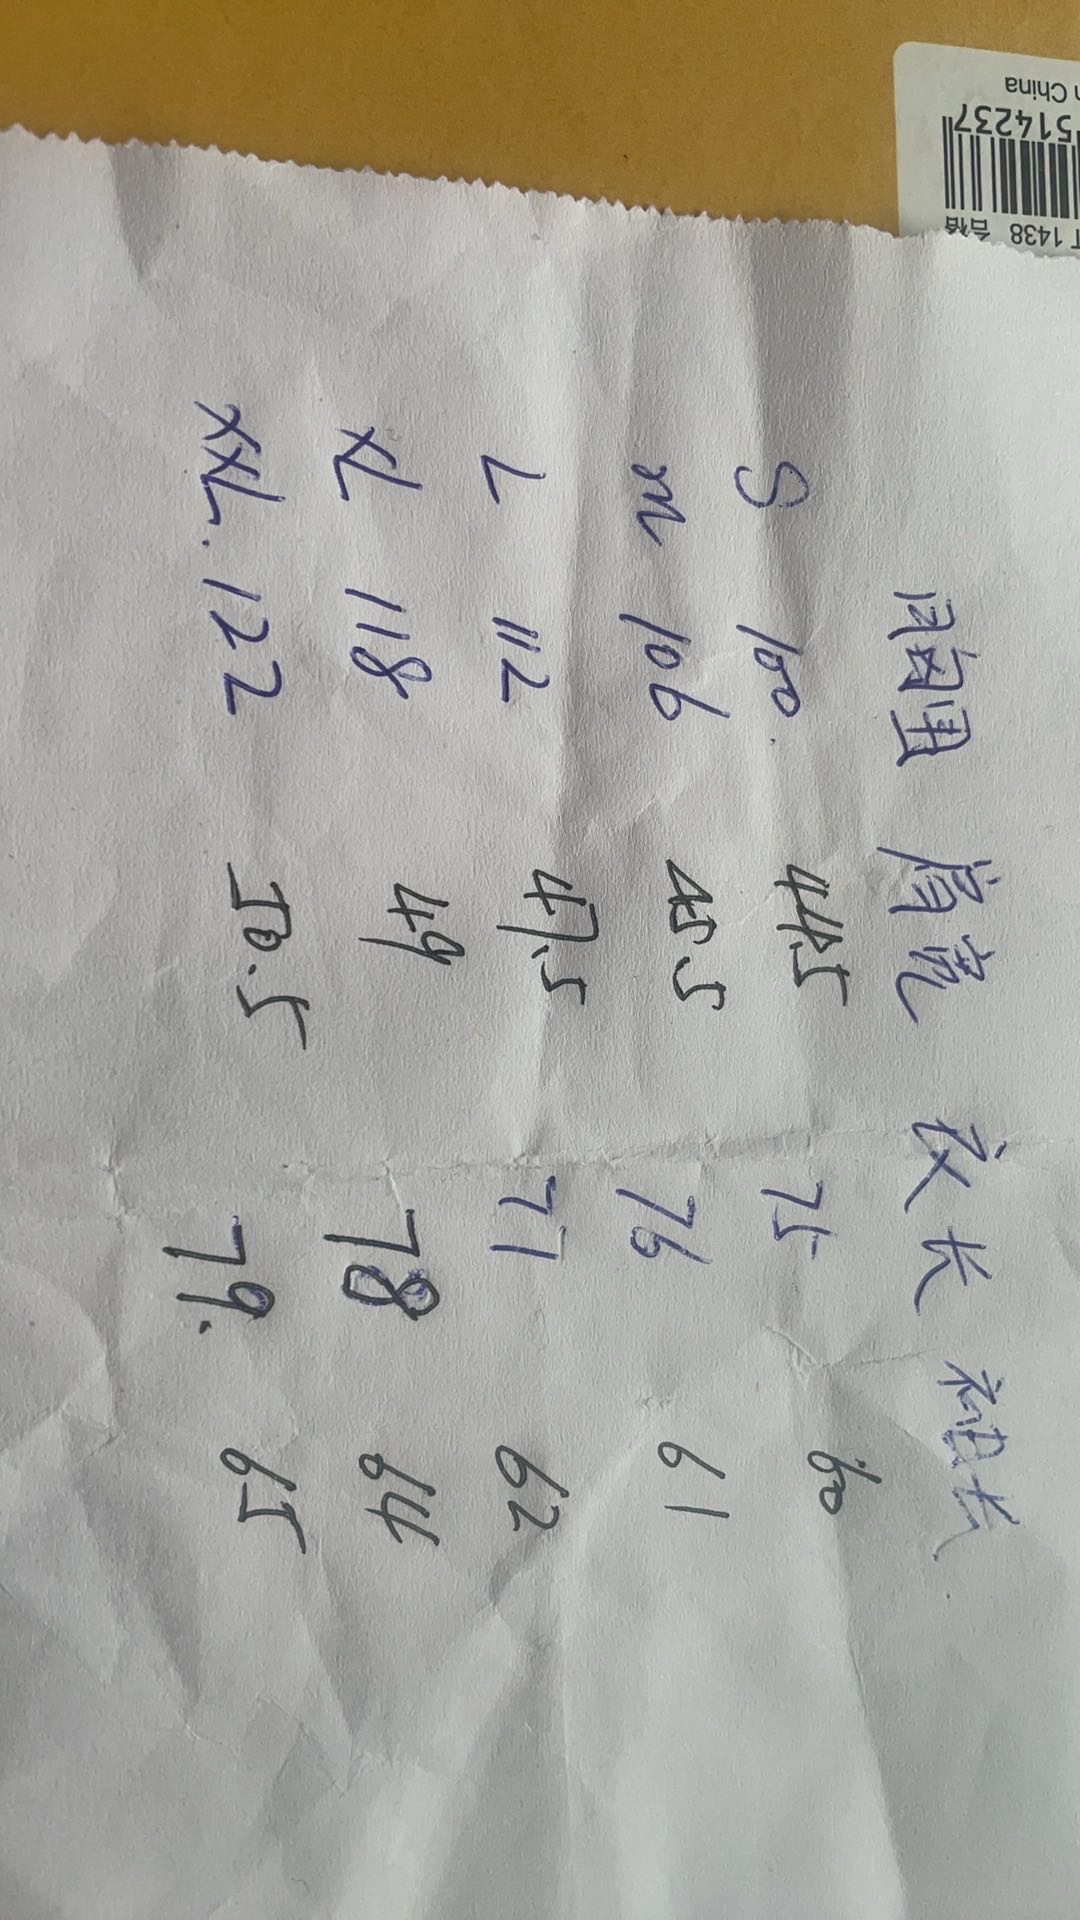 胸围 肩宽 衣长 袖长
S 100. 44.5 75 60
m 106 45.5 76 61
L 112 47.5 77 62
XL 118 49 78 64
XXL. 122 50.5 79. 65
n China
514237
T 1438 合格